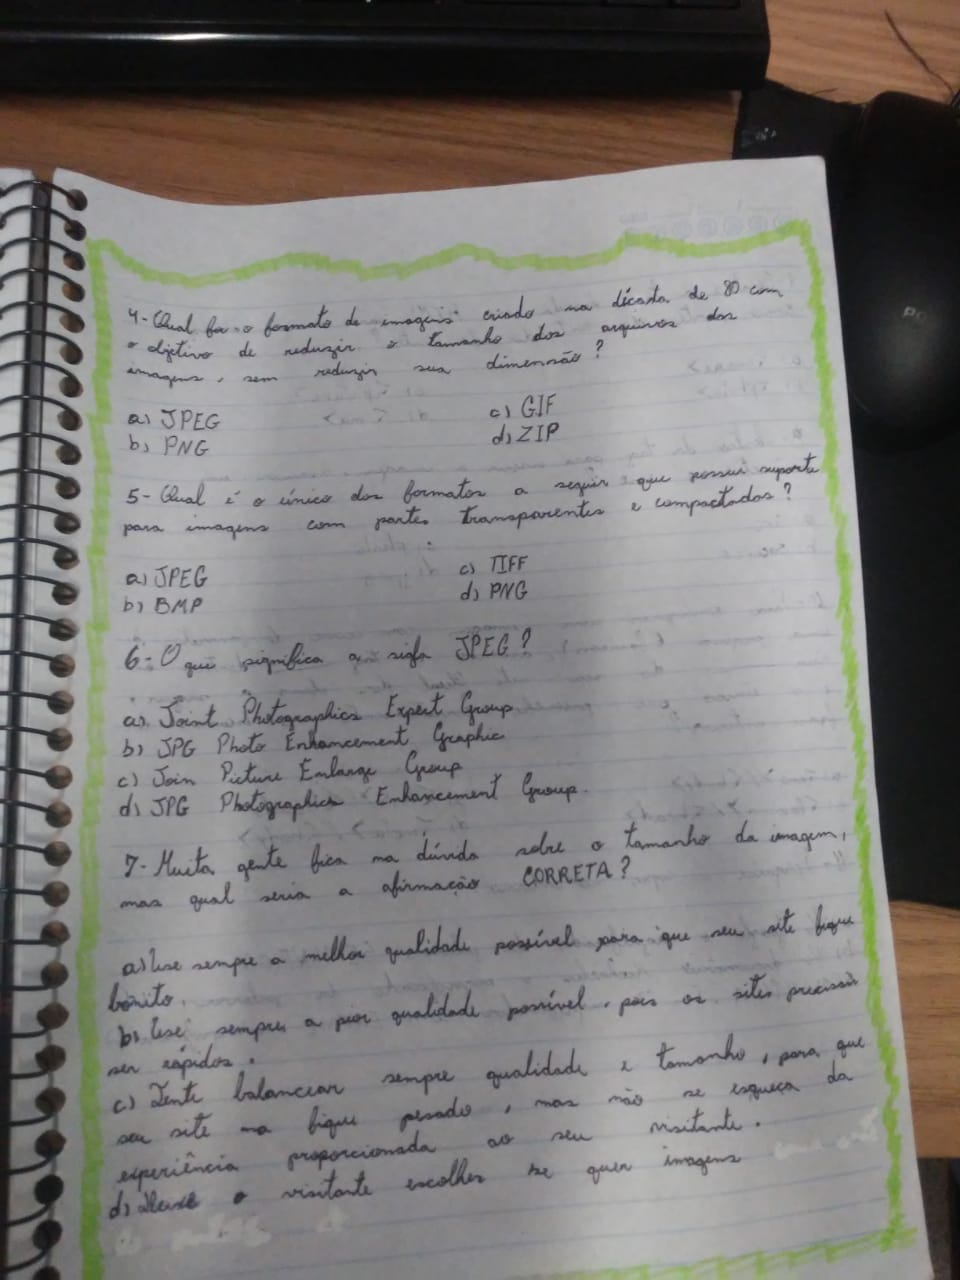 4- Qual foi o formato de imagens criado na década de 80 com
o objetivo de reduzir o tamanho dos arquivos das
imagens, sem reduzir sua dimensão?
a) JPEG
b) PNG
c) GIF
d) ZIP
5- Qual é o único dos formatos a seguir que possui suporte
para imagens com partes transparentes e compactadas?
a) JPEG
b) BMP
c) TIFF
d) PNG
6- O que significa a sigla JPEG?
a) Joint Photographics Expert Group
b) JPG Photo Enhancement Graphic
c) Join Picture Enlarge Group
d) JPG Photographics Enhancement Group.
7- Muita gente fica na dúvida sobre o tamanho da imagem,
mas qual seria a afirmação CORRETA?
a) Use sempre a melhor qualidade possível para que seu site fique
bonito.
b) Use sempre a pior qualidade possível, pois os sites precisam
ser rápidos.
c) Tente balancear sempre qualidade e tamanho, para que
seu site na fique pesado, mas não se esqueça da
experiência proporcionada ao seu visitante.
d) Deixe o visitante escolher se quer imagens